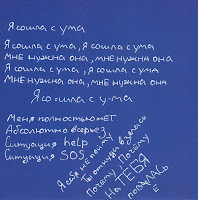 Я сошла с ума
Я сошла с ума, я сошла с ума
мне нужна она, мне нужна она
Я сошла с ума, я сошла с ума
мне нужна она, мне нужна она
Я со-шла с у-ма
Меня полностью нет
Абсолютно всерьез
Ситуация help
Ситуация SOS
Я себя не пойму
Ты откуда взялась
Почему Почему
На ТЕБЯ
повелась
Е